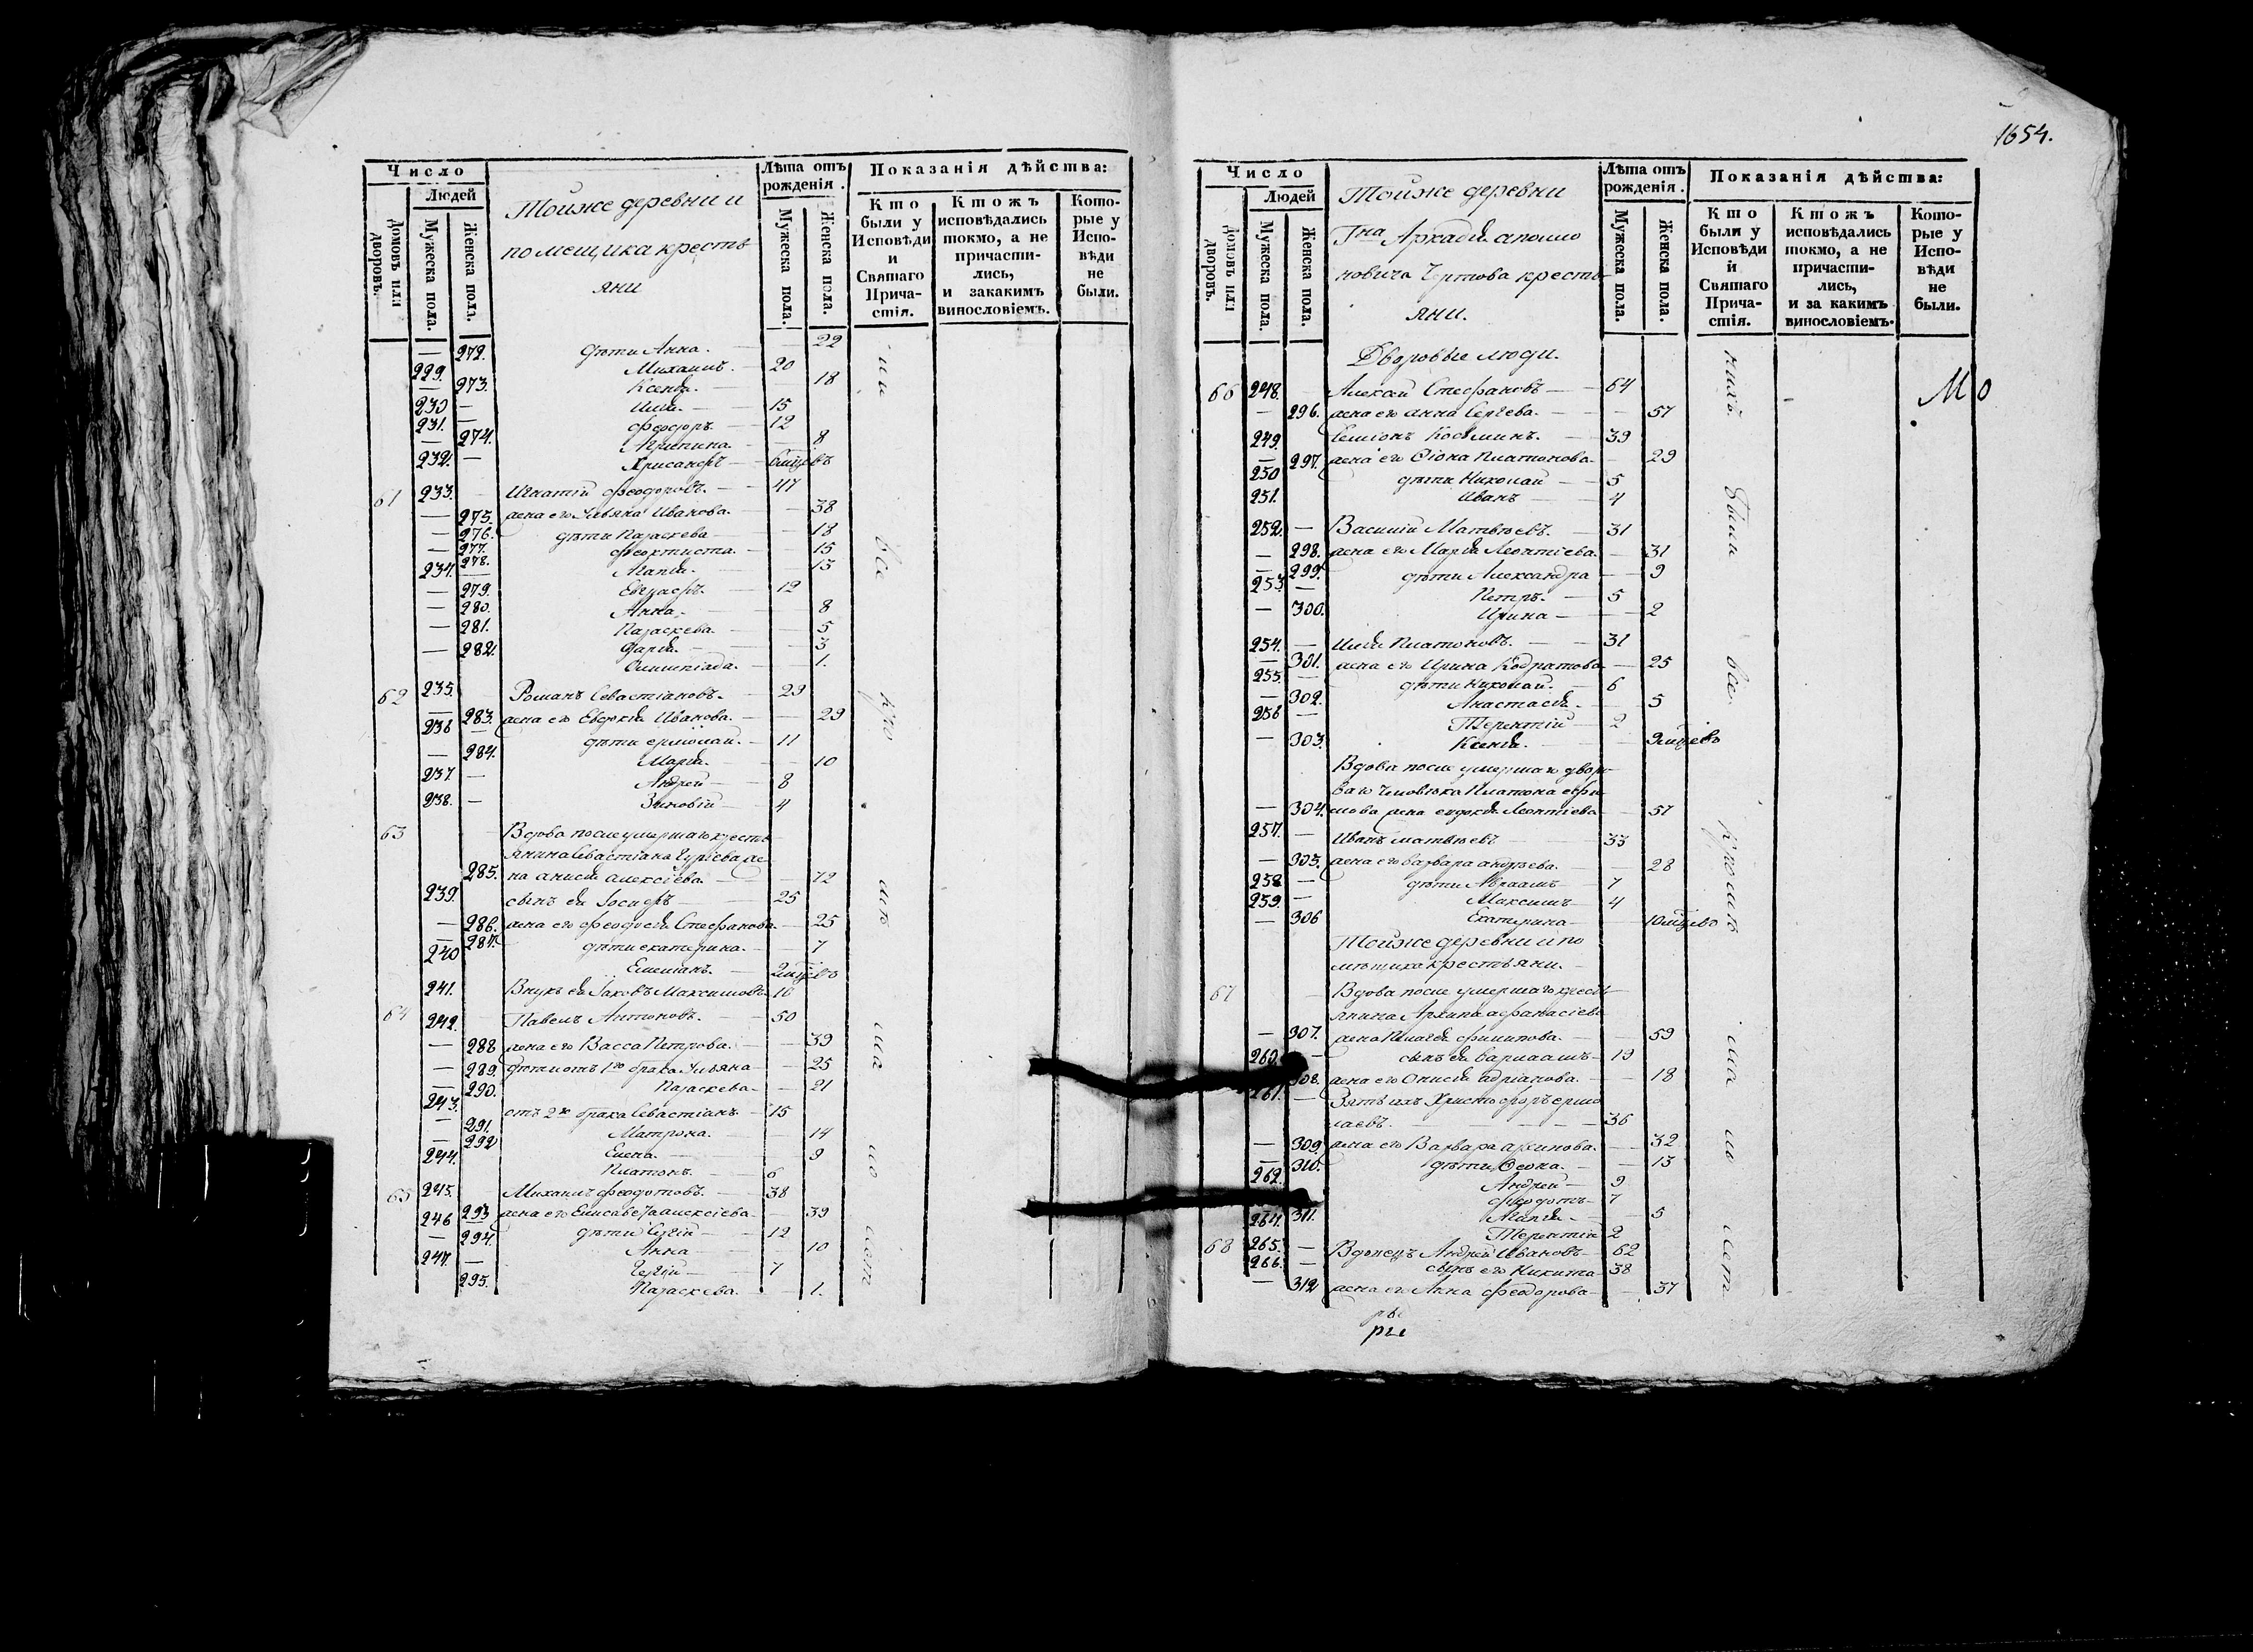 Число
Людей
Домовъ или дворовъ.
Мужеска пола.
Женска пола.
Тойже деревни и
помещика кресть
яни
Лѣта отъ рожденія.
Мужеска пола.
Женска пола.
Показанія дѣйства:
Кто были у Исповѣди и Святаго Причастія.
Ктожъ исповѣдались токмо, а не причастились, и закакимъ винословіемъ.
Которые у Исповѣди не были.
— 272. дѣти Анна. — 22
229. Михаилъ. — 20
— 273. Ксенія. — 18
230 — Илія. — 15
231. — Феодоръ — 12
— 274. Агрипина. — 8
232. — Хрисанфъ — 6 мцевъ
61 233. Игнатій Феодоровъ. — 47
— 275. жена его Ульяна Иванова. — 38
— 276. дѣти Параскева — 18
— 277. Феоктиста. — 15
— 278. Марія. — 13
234. — Евграфъ. — 12
— 279. Анна. — 8
— 280. Параскева. — 5
— 281. Дарія. — 3
— 282. Олимпіада. — 1.
62 235. Романъ Севастіановъ. — 29
— 283. жена его Евдокія Иванова. — 29
236 — дѣти Ермолай. — 11
— 284. Марія. — 10
237. — Андрей — 8
238. — Зиновій — 4
63 Вдова после умершаго кресть
янина Севастіана Гуріева же
285. на Анисія Алексіева. — 72
239. сынъ ея Іосифъ — 25
— 286. жена его Феодосія Стефанова — 25
— 287. дѣти Екатерина. — 7
240 Емеліанъ. — 2 мцевъ
241. Внукъ ея Іаковъ Максимовъ — 16
64 242. Павелъ Антоновъ. — 50
— 288 жена его Васса Петрова. — 39
— 289. дѣти отъ 1го брака Ульяна — 25
— 290. Параскева — 21
243. отъ 2го брака Севастіанъ — 15
— 291. Матрона. — 14
— 292 Елена. — 9
244. Платонъ. — 6
65 245. Михаилъ Феодотовъ. — 38
293 жена его Елисавета Алексіева — 39
246 дѣти Сергій — 12
— 294. Анна — 10
247. — Сергій — 7
295. Параскева. — 1.
все
кро
мѣ
ма
ло
лет
1654.
Число
Людей
Домовъ или дворовъ.
Мужеска пола.
Женска пола.
Тойже деревни
Гна Аркадія Аполло
новича Чертова кресть
яни.
Лѣта отъ рожденія.
Мужеска пола.
Женска пола.
Показанія дѣйства:
Кто были у Исповѣди и Святаго Причастія.
Ктожъ исповѣдались токмо, а не причастились, и за какимъ винословіемъ.
Которые у Исповѣди не были.
Дворовые люди.
66 248. Алексій Стефановъ — 64
— 296. жена его Анна Сергѣева. — 57
249. Семіонъ Косминъ. — 39
— 297. жена его Платонова — 29
250 дѣти Николай — 5
251. Иванъ — 4
252. — Василій Матвѣевъ. — 31
— 298. жена его Марія Леонтіева. — 31
299. дѣти Александра — 9
253. — Петръ. — 5
— 300. Ирина — 2
254. — Илія Платоновъ. — 31
— 301. жена его Ирина Кодратова — 25
255. — дѣти Николай. — 6
— 302. Анастасія — 5
256 — Терентій — 2
— 303. Ксенія. — 9 мцевъ
Вдова после умершаго дворо
ваго человѣка Платона Ефи
— 304. мова жена Евдокія Леонтіева — 57
257. — Иванъ Матвѣевъ — 33
— 305. жена его Варвара Андрѣева. — 28
258 — дѣти Авраамъ — 7
259. — Максимъ — 4
— 306 Екатерина — 10 мцевъ
Тойже деревни и по
мѣщика крестьяни.
67 Вдова после умершаго кресть
янина Архипа Афанасіева
— 307. жена Пелагія Филипова. — 59
260. — сынъ ея Варлаамъ — 19
308. жена его Онисія Адріанова. — 18
261. — Зять ихъ Христофоръ Ермо
лаевъ. — 36
— 309. жена его Варвара Архипова. — 32
— 310. дѣти Фекла. — 13
262. Андрей — 9
Феодотъ — 7
311. Марія — 5
264. Терентій 2
68 265. — Вдовецъ Андрей Ивановъ — 62
266. — сынъ его Никита — 38
— 312 жена его Анна Феодорова — 37
нихъ.
были
все.
кромѣ
ма
ло
лет
М О